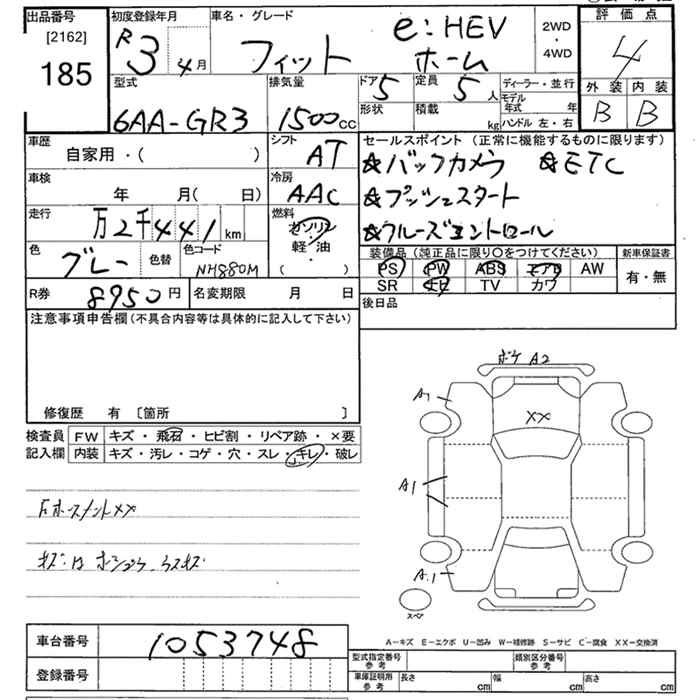 出品番号 初度登録年月 車名・グレード 評価点
[2162] R3 4月 フィット e:HEV ホーム 2WD・4WD 4
185
型式 排気量 ドア 5 定員 5人 ディーラー・並行 外装 内装
6AA-GR3 1500cc 形状 積載 kg モデル年式 年 B B
ハンドル 左・右
車歴 シフト セールスポイント (正常に機能するものに限ります)
自家用・( ) AT ☆バックカメラ ☆ETC
車検 冷房
年 月( 日) AAC ☆プッシュスタート
走行 燃料
万2千441km ガソリン ☆クルーズコントロール
軽・油
( )
色 グレー 色替 色コード NH880M
装備品 (純正品に限り○をつけてください) 新車保証書
PS PW ABS エアB AW 有・無
SR ナビ TV カワ
R券 8950円 名変期限 月 日 後日品
注意事項申告欄 (不具合内容等は具体的に記入して下さい)
修復歴 有 [箇所 ]
検査員 FW キズ・飛石・ヒビ割・リペア跡・×要
記入欄 内装 キズ・汚レ・コゲ・穴・スレ・キレ・破レ
A2
A1
XX
A1
A.1
スペア
車台番号 1053748
登録番号
A-キズ E-エクボ U-凹み W-補修跡 S-サビ C-腐食 XX-交換済
型式指定番号 参考 類別区分番号 参考
車庫証明 参考 長さ cm 幅 cm 高さ cm